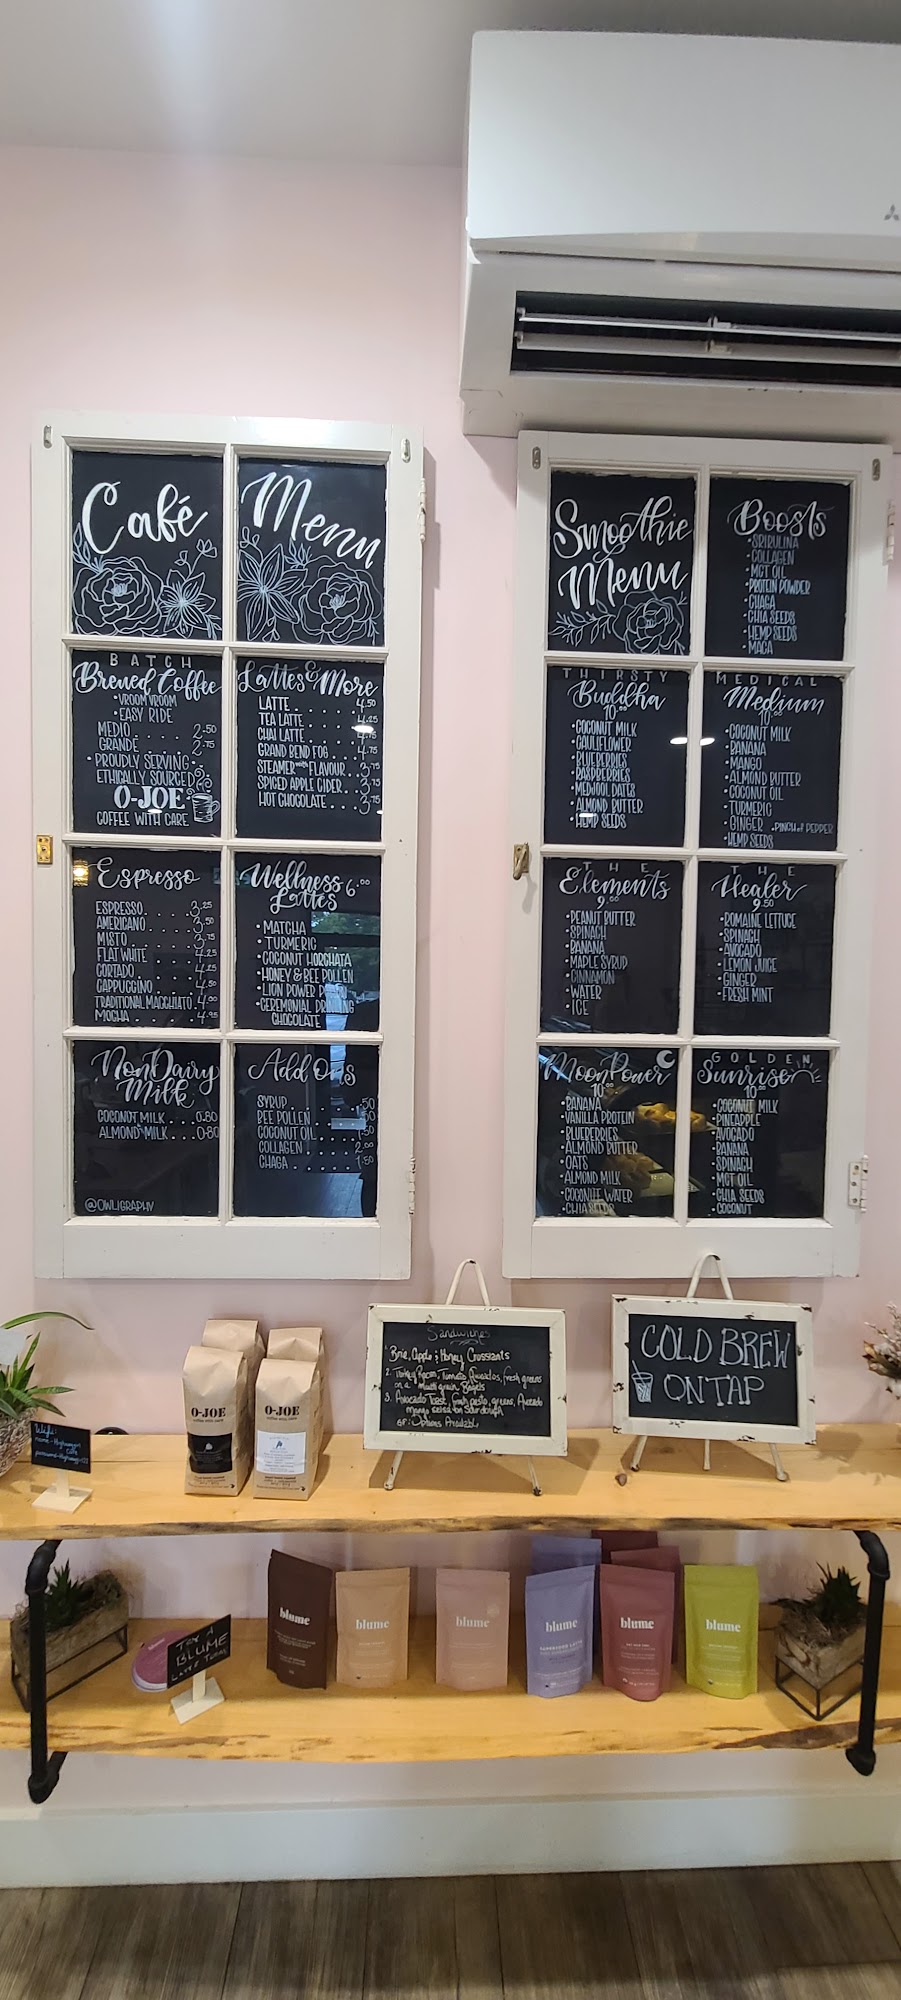 Café
Menu
BATCH
Brewed Coffee
• VROOM VROOM
• EASY RIDE
MEDIO . . . . . 2.50
GRANDE . . . . . 2.75
• PROUDLY SERVING •
ETHICALLY SOURCED
O-JOE
COFFEE WITH CARE
Lattes & More
LATTE . . . . . . . 4.50
TEA LATTE . . . . . . 4.25
CHAI LATTE . . . . . 4.75
GRAND BEND FOG . . . . 4.75
STEAMER with FLAVOUR . . 3.75
SPICED APPLE CIDER . . . 3.75
HOT CHOCOLATE . . . . 3.75
Espresso
ESPRESSO . . . . . 3.25
AMERICANO . . . . . 3.50
MISTO . . . . . . 3.75
FLAT WHITE . . . . . 4.25
CORTADO . . . . . . 4.25
CAPPUCCINO . . . . . 4.50
TRADITIONAL MACCHIATO . 4.00
MOCHA . . . . . . 4.95
Wellness 6.00
Lattes
• MATCHA
• TURMERIC
• COCONUT HORCHATA
• HONEY & BEE POLLEN
• LION POWER
• CEREMONIAL DRINKING
CHOCOLATE
NonDairy
Milk
COCONUT MILK . . . 0.80
ALMOND MILK . . . . 0.80
@OWLIGRAPHY
Add Ons
SYRUP . . . . . . .50
BEE POLLEN . . . . .50
COCONUT OIL . . . . 1.50
COLLAGEN . . . . . 2.00
CHAGA . . . . . . 1.50
Smoothie
Menu
Boosts
• SPIRULINA
• COLLAGEN
• MCT OIL
• PROTEIN POWDER
• CHAGA
• CHIA SEEDS
• HEMP SEEDS
• MACA
THIRSTY
Buddha
10.00
• COCONUT MILK
• CAULIFLOWER
• BLUEBERRIES
• RASPBERRIES
• MEDJOOL DATES
• ALMOND BUTTER
• HEMP SEEDS
MEDICAL
Medium
10.00
• COCONUT MILK
• BANANA
• MANGO
• ALMOND BUTTER
• COCONUT OIL
• TURMERIC
• GINGER • PINCH of PEPPER
• HEMP SEEDS
THE
Elements
9.00
• PEANUT BUTTER
• SPINACH
• BANANA
• MAPLE SYRUP
• CINNAMON
• WATER
• ICE
THE
Healer
9.50
• ROMAINE LETTUCE
• SPINACH
• AVOCADO
• LEMON JUICE
• GINGER
• FRESH MINT
MoonPower
10.00
• BANANA
• VANILLA PROTEIN
• BLUEBERRIES
• ALMOND BUTTER
• OATS
• ALMOND MILK
• COCONUT WATER
• CHIA SEEDS
GOLDEN
Sunrise
10.00
• COCONUT MILK
• PINEAPPLE
• AVOCADO
• BANANA
• SPINACH
• MCT OIL
• CHIA SEEDS
• COCONUT
Sandwiches
1. Brie, Apple & Honey Croissants
2. Turkey Bacon, Tomato, Avocados, fresh greens
on a multi grain Bagels
3. Avocado Toast, fresh pesto, greens, Avocado
mango salsa on Sourdough
GF: Options Available
COLD BREW
ON TAP
O-JOE
COFFEE WITH CARE
O-JOE
COFFEE WITH CARE
TRY A
BLUME
blume
blume
blume
blume
SUPERFOOD LATTE
blume
blume